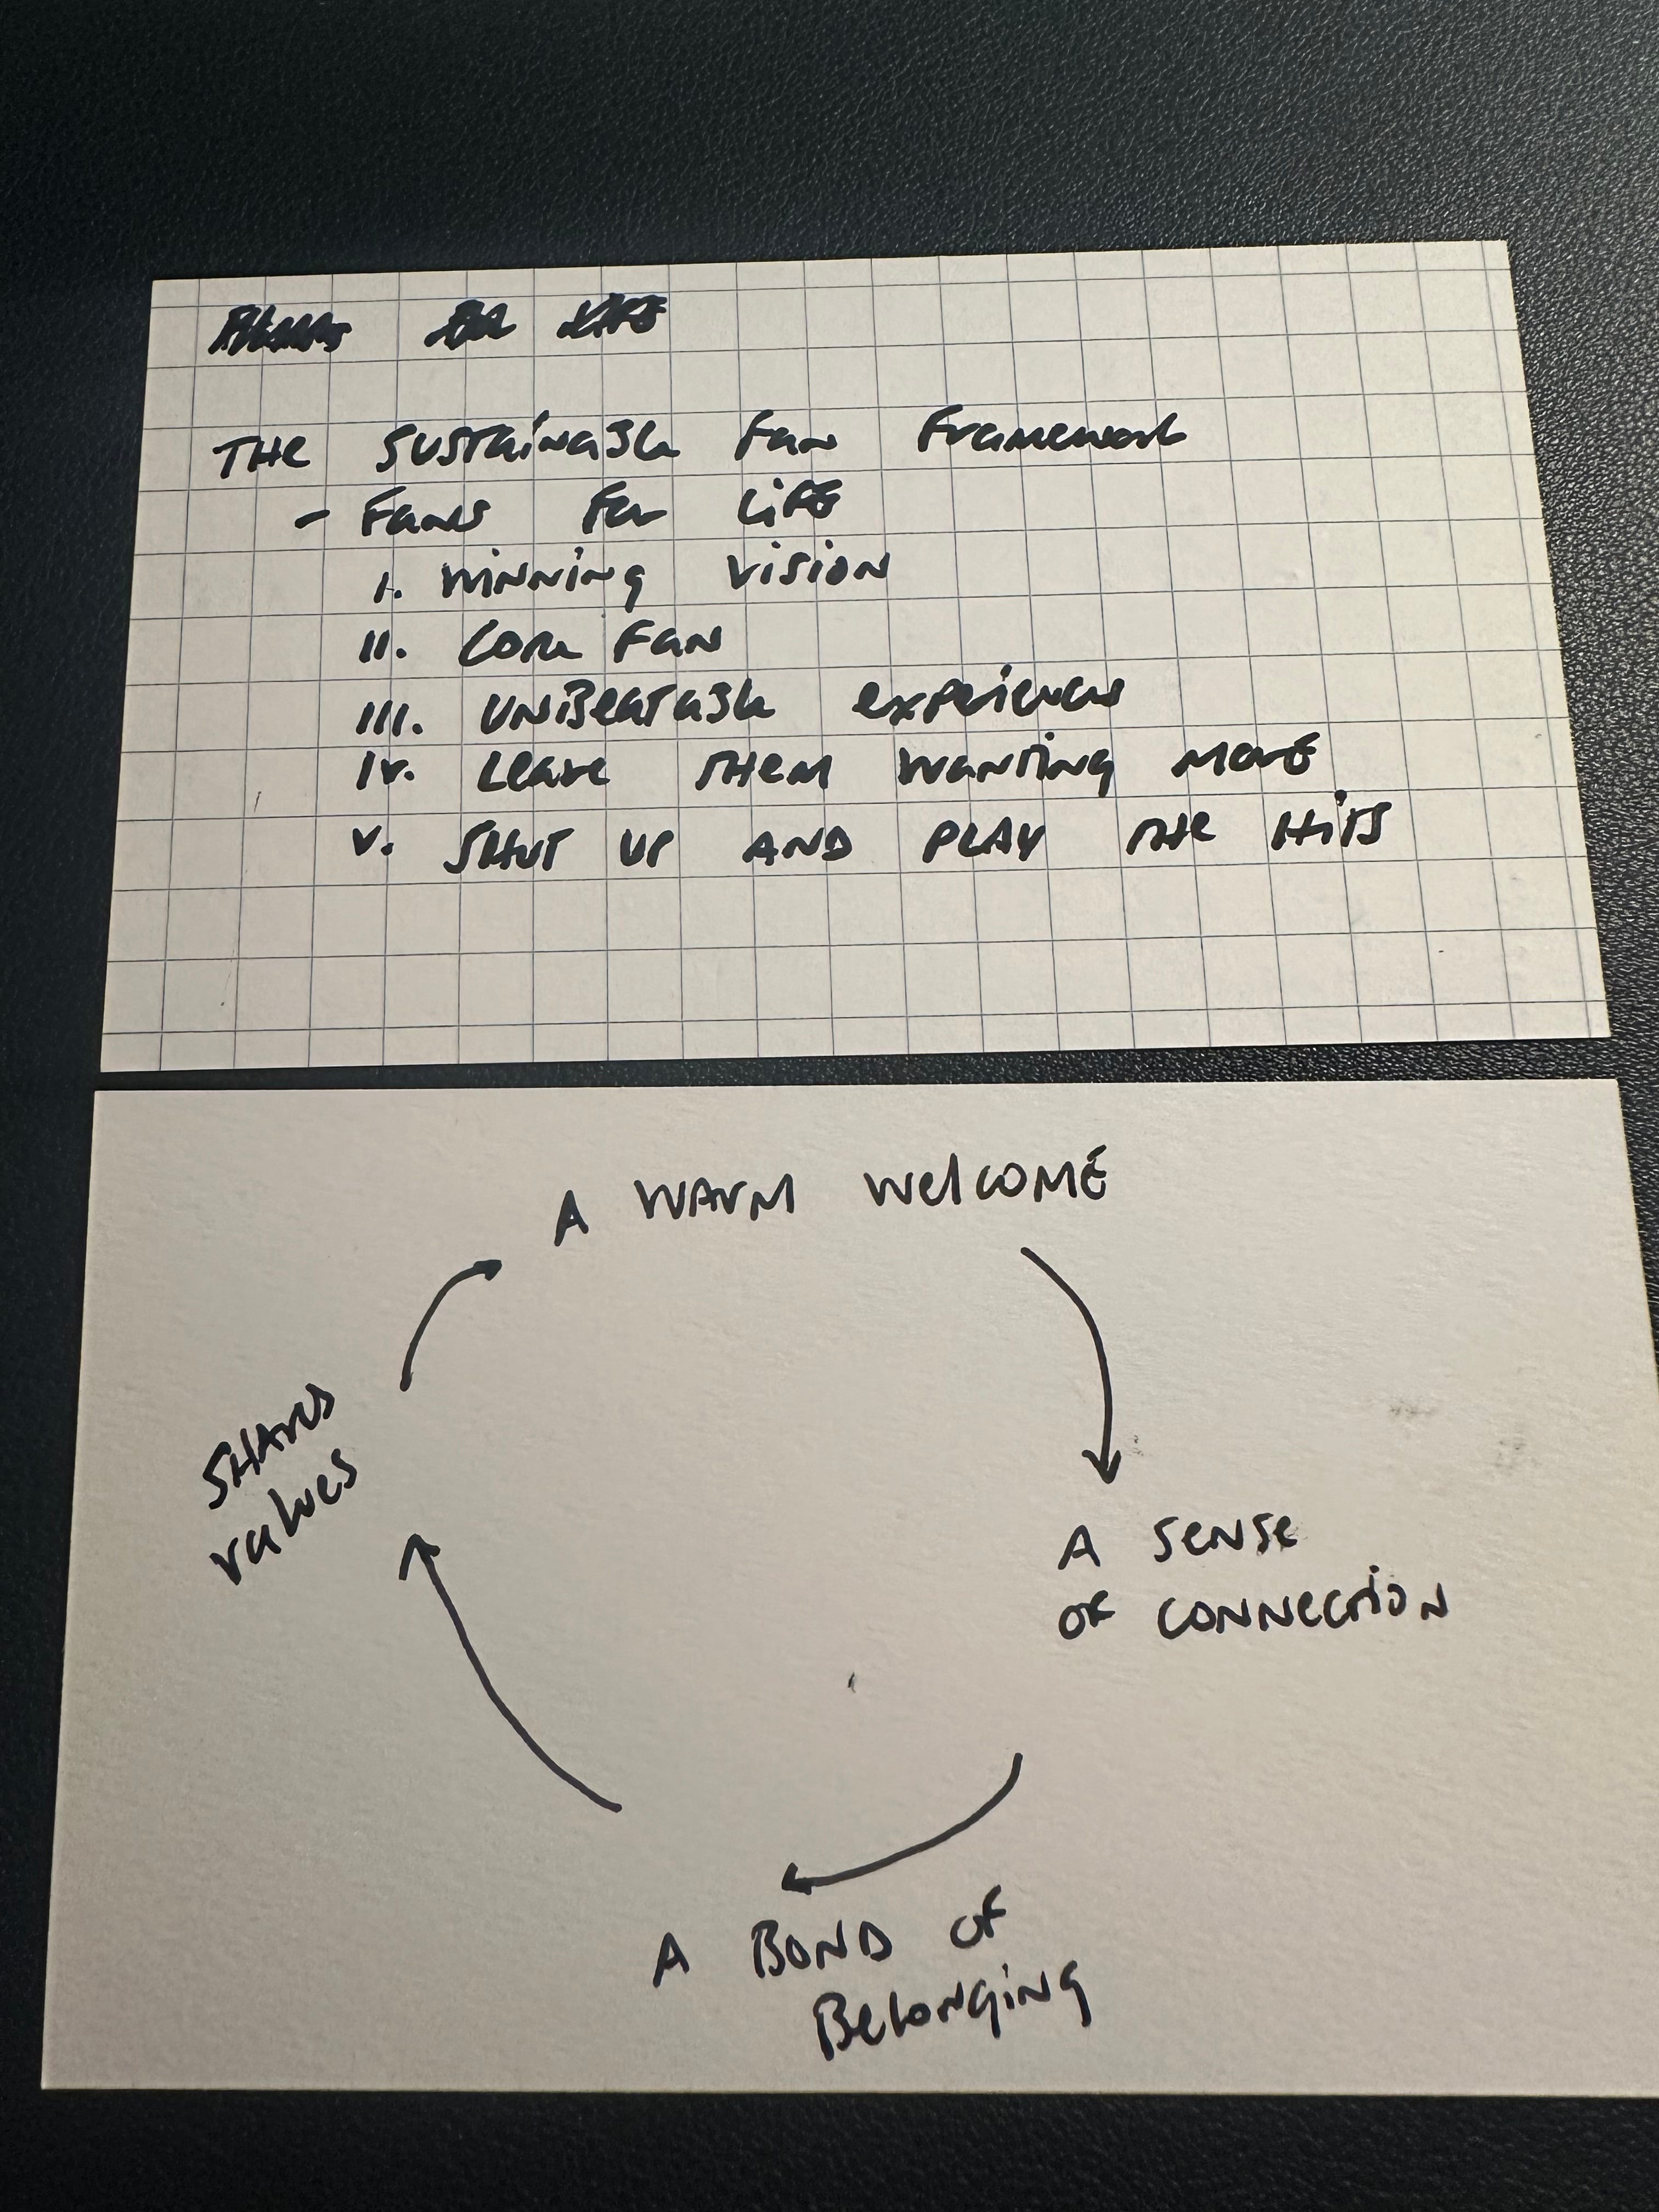 THE SUSTAINABLE FAN FRAMEWORK
- FANS FOR LIFE
I. WINNING VISION
II. CORE FAN
III. UNBEATABLE EXPERIENCES
IV. LEAVE THEM WANTING MORE
V. SHUT UP AND PLAY THE HITS
A WARM WELCOME
A SENSE
OF CONNECTION
A BOND OF
BELONGING
SHARED
VALUES